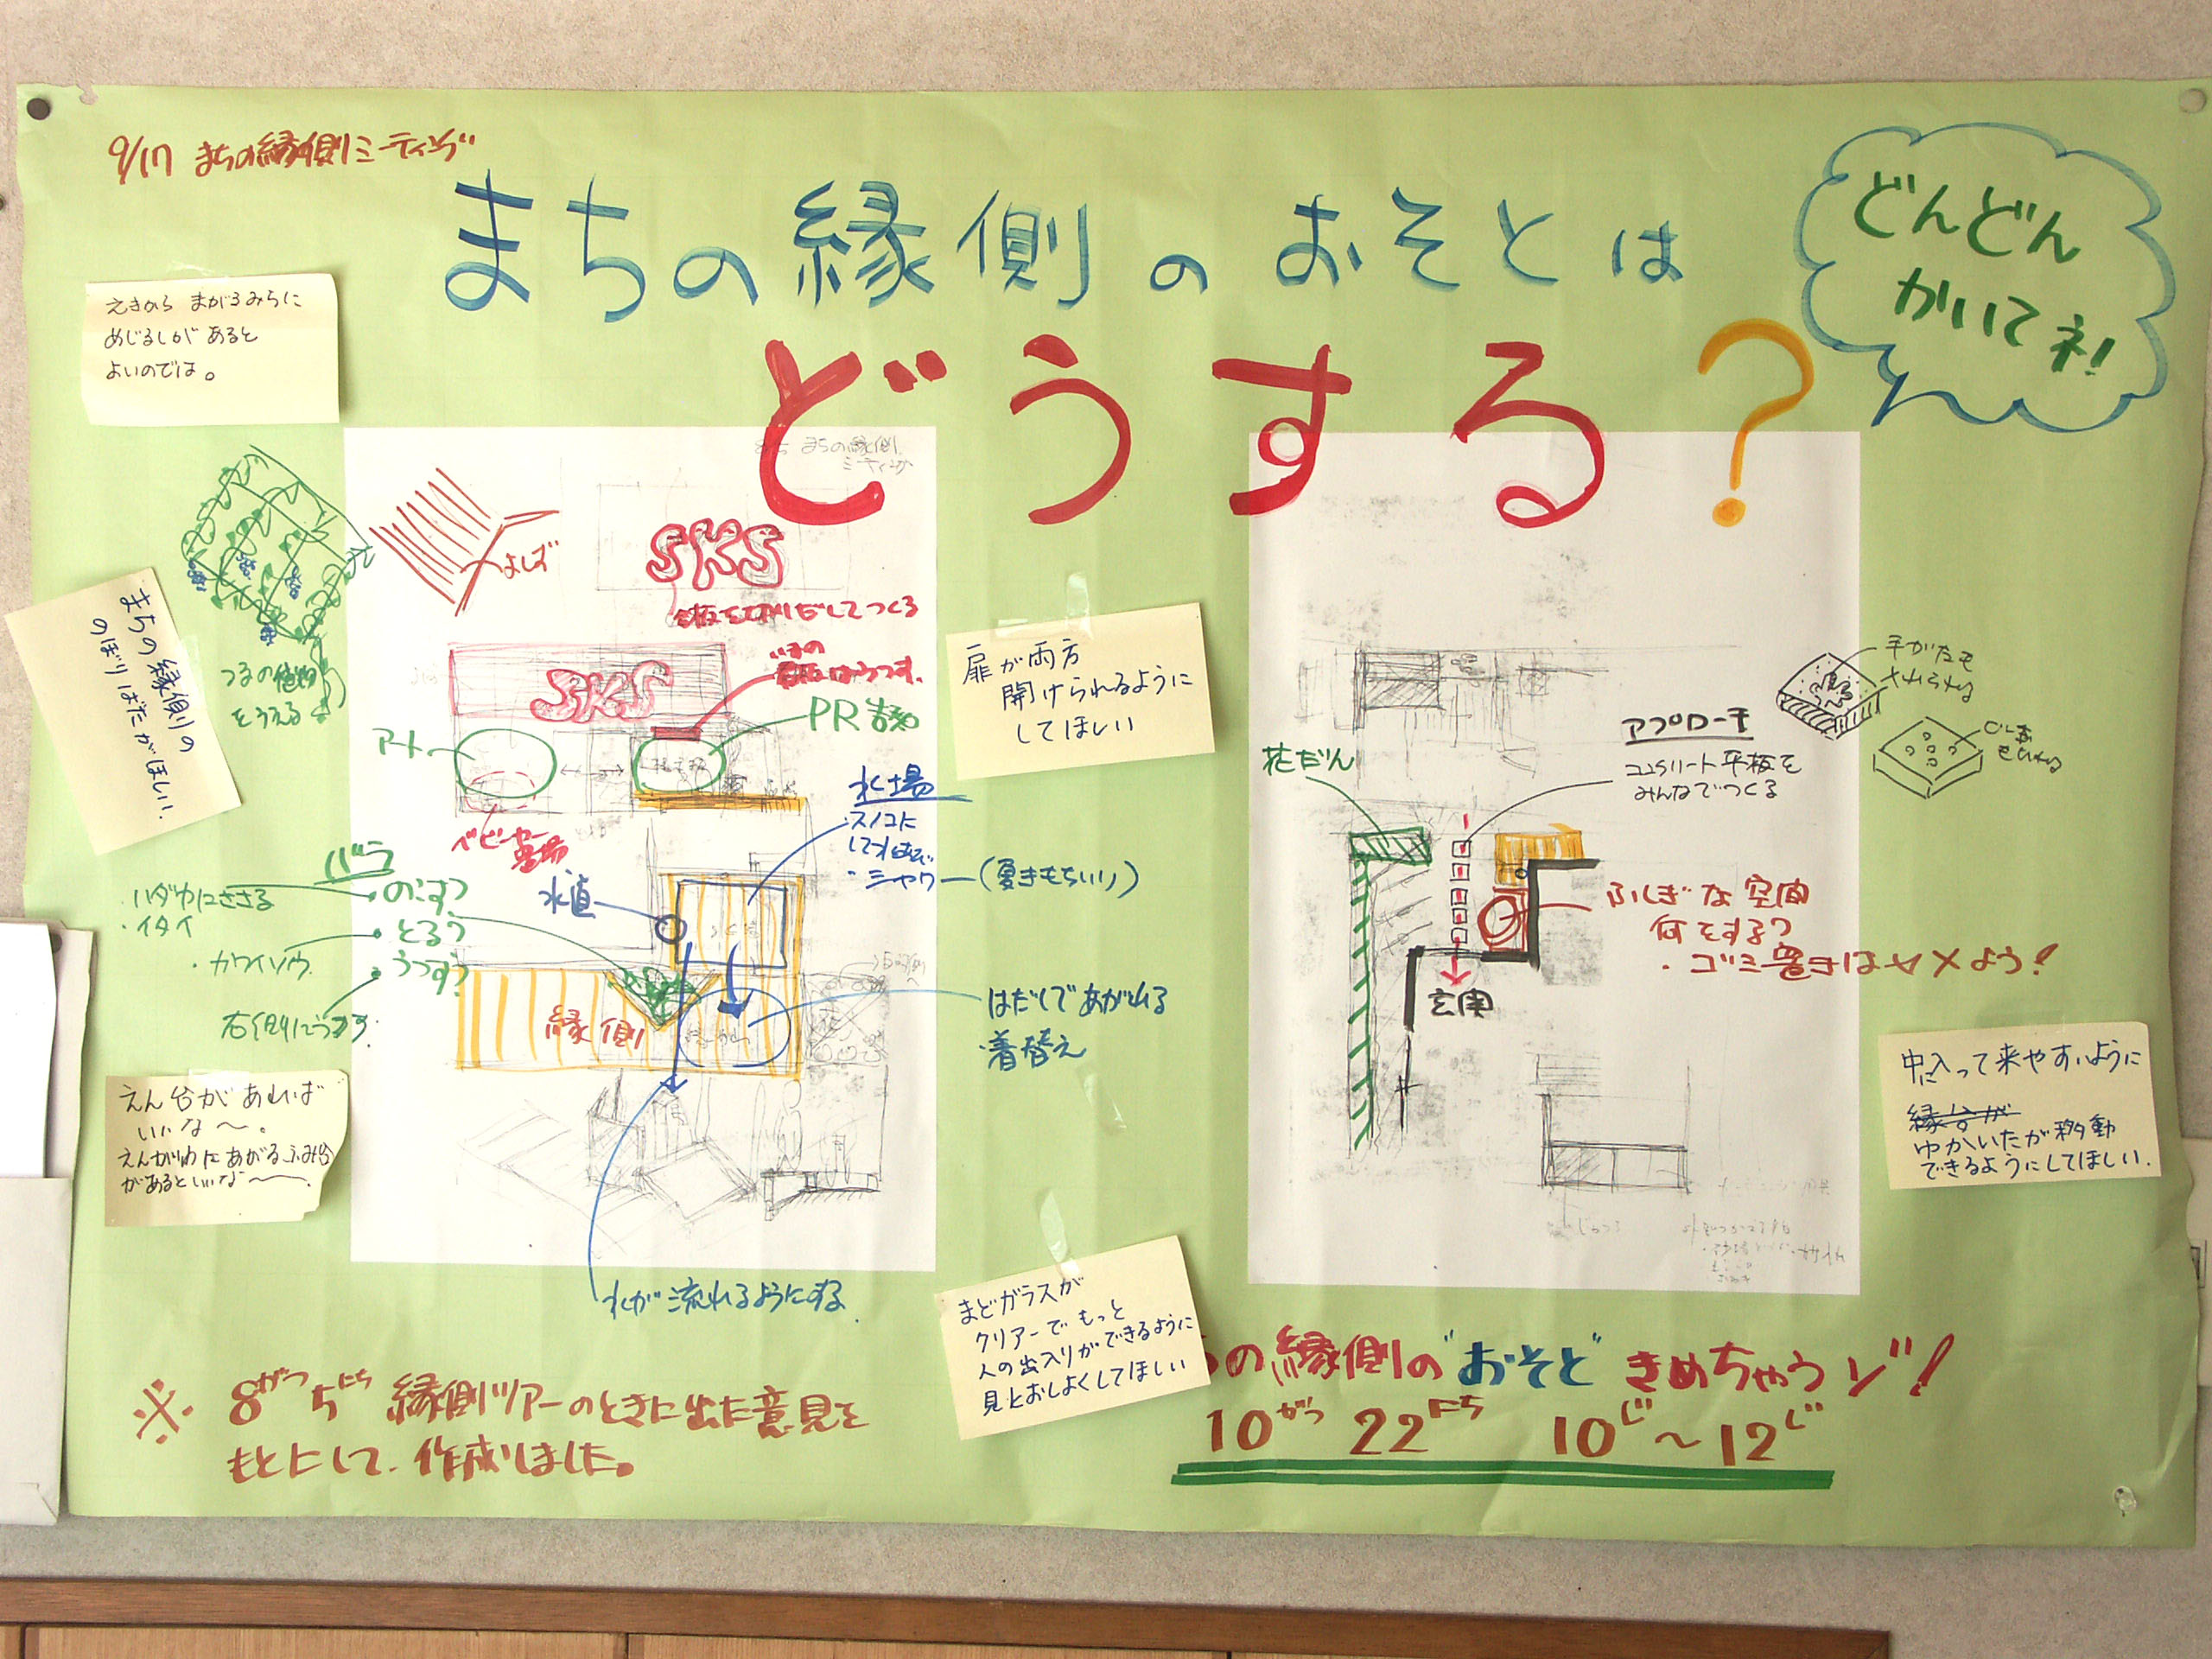 9/17 まちの縁側ミーティング
まちの縁側のおそとは
どうする?
どんどん
かいてネ!
えきから まがるみちに
めじるしが あると
よいのでは。
まちの縁側の
のぼりばたがほしい。
つるの植物
をうえる
よしず
まちの縁側
ミーティング
SKS
看板を切りだしてつくる
SKS
いまの
看板はうつす。
PR告知
アート
ベビーカー
置場
水場
・スノコに
して水はけ
・シャワー(夏きもちいい)
水道
バラ
のこす?
とる?
うつす?
・ハダカにささる
・イタイ
・カワイソウ
右側にうつす
縁側
はだしであがれる
・着替え
水が流れるようにする
えん台が あれば
いいな〜。
えんがわにあがるふみ台
があるといいな〜。
扉が両方
開けられるように
してほしい
まどガラスが
クリアーで もっと
人の出入りができるように
見とおしよくしてほしい
花だん
アプローチ
コンクリート平板を
みんなでつくる
手がたも
とれる
ふしぎな空間
何をする?
・ゴミ置きはヤメよう!
玄関
中に入って来やすいように
縁台が
ゆかいたが移動
できるようにしてほしい.
※ 8がつ5にち 縁側ツアーのときに出た意見を
もとにして、作成しました。
の縁側の"おそと"きめちゃうゾ!
10がつ 22にち 10じ〜12じ